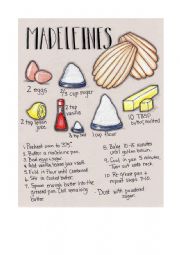 MADELEINES
2 eggs
2/3 cup sugar
10 TBSP
butter, melted
2 tsp
lemon juice
1 tsp
vanilla
1 cup flour
1. Preheat oven to
2. Butter a madeleine pan.
3. Beat eggs + sugar.
4. Add vanilla, lemon juice +
5. Fold in flour until combined.
6. Stir in cooled butter.
7. Spoon enough batter into the
prepared pan. Chill remaining
batter.
8. Bake 10-15 minutes
until golden brown.
9. Cool in pan 5 minutes.
Turn out to cool.
10. Re-grease pan +
repeat steps 7-9.
Dust with powdered
sugar.